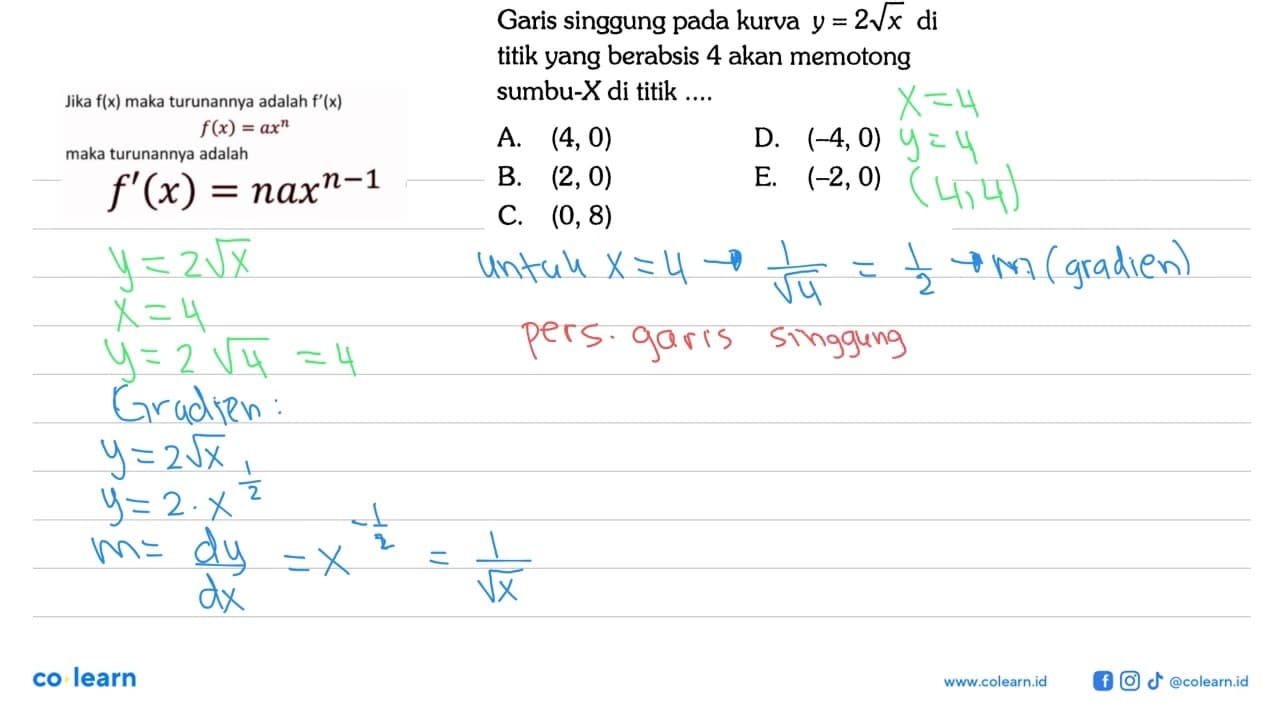 Garis singgung pada kurva y = 2√x di
titik yang berabsis 4 akan memotong
sumbu-X di titik ....
A. (4, 0)
B. (2, 0)
C. (0, 8)
D. (–4, 0)
E. (–2, 0)
x = 4
y = 4
(4,4)
Jika f(x) maka turunannya adalah f'(x)
f(x) = axⁿ
maka turunannya adalah
f'(x) = naxⁿ⁻¹
y = 2√x
x = 4
y = 2 √4 = 4
Gradien :
y = 2√x
y = 2 . x^(1/2)
m = dy/dx = x^(-1/2) = 1/√x
untuk x = 4 → 1/√4 = 1/2 → m (gradien)
pers. garis singgung
co learn
www.colearn.id
@colearn.id